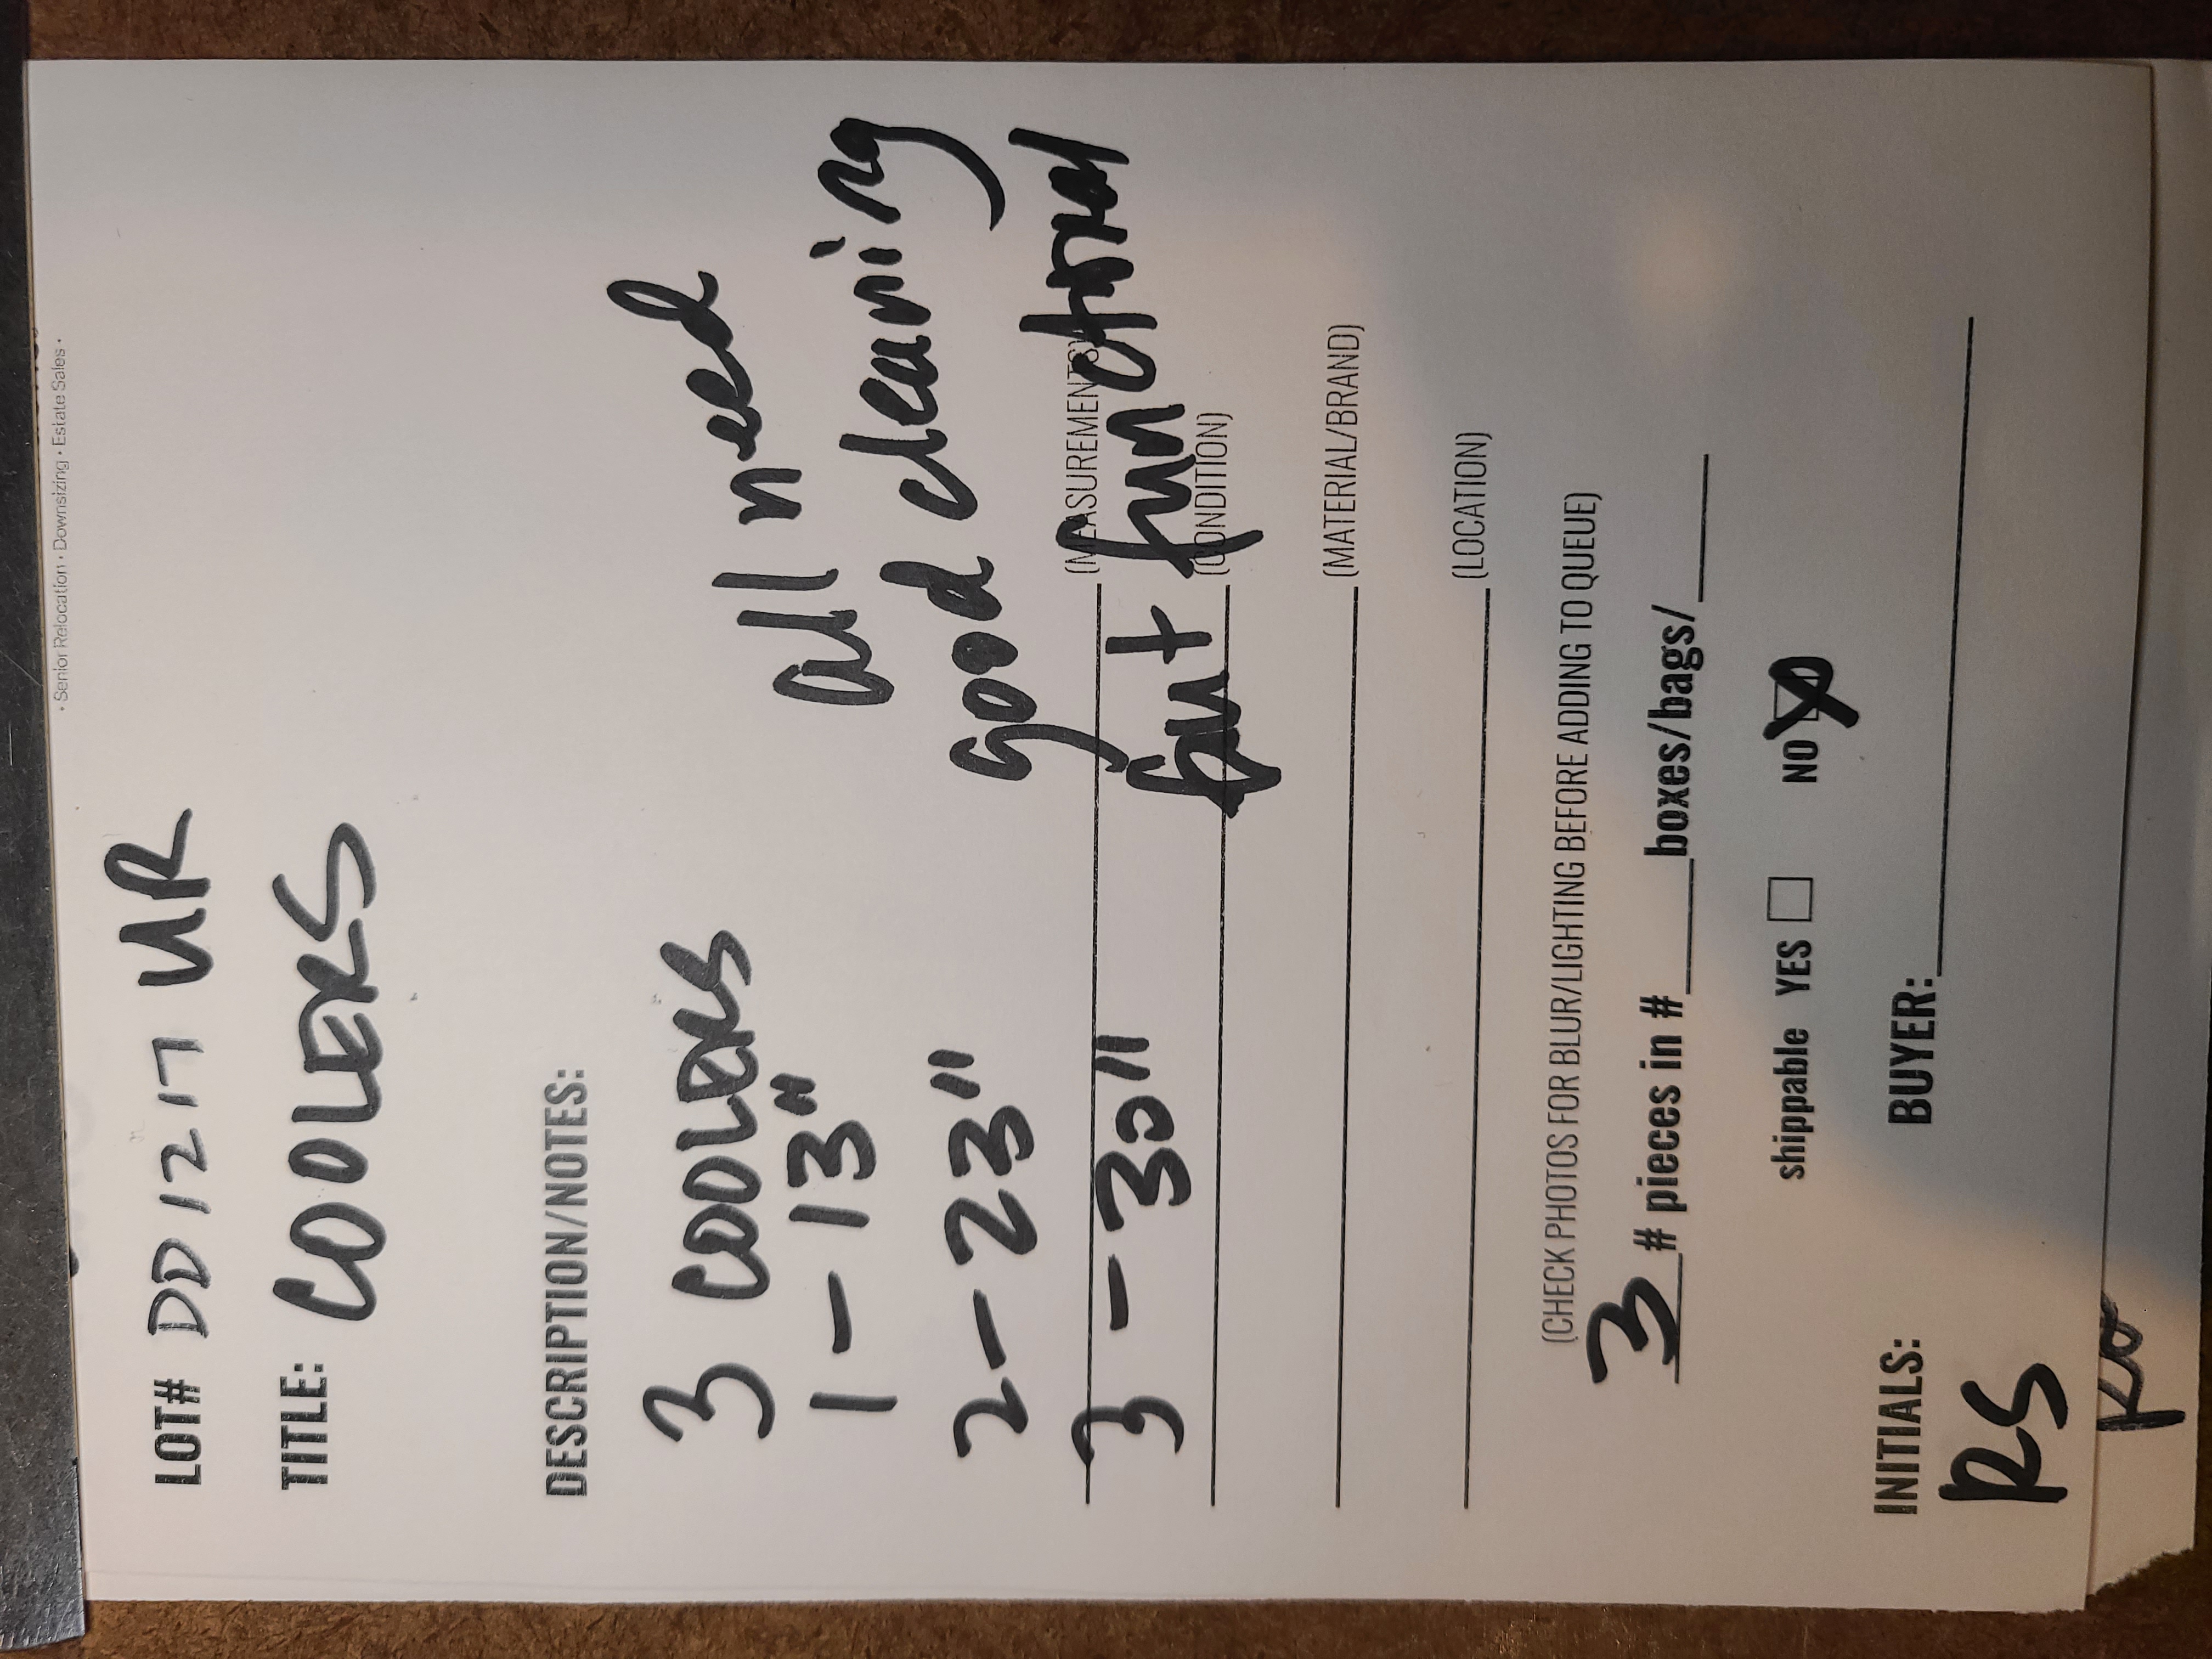 • Senior Relocation • Downsizing • Estate Sales •
LOT# DD 1217 UR
TITLE: COOLERS
DESCRIPTION/NOTES:
3 COOLERS
1 - 13"
2 - 23"
3 - 30"
all need
good cleaning
but functional
(MEASUREMENTS)
(CONDITION)
(MATERIAL/BRAND)
(LOCATION)
(CHECK PHOTOS FOR BLUR/LIGHTING BEFORE ADDING TO QUEUE)
3 # pieces in # boxes/bags/
shippable YES NO
INITIALS: BUYER:
RS